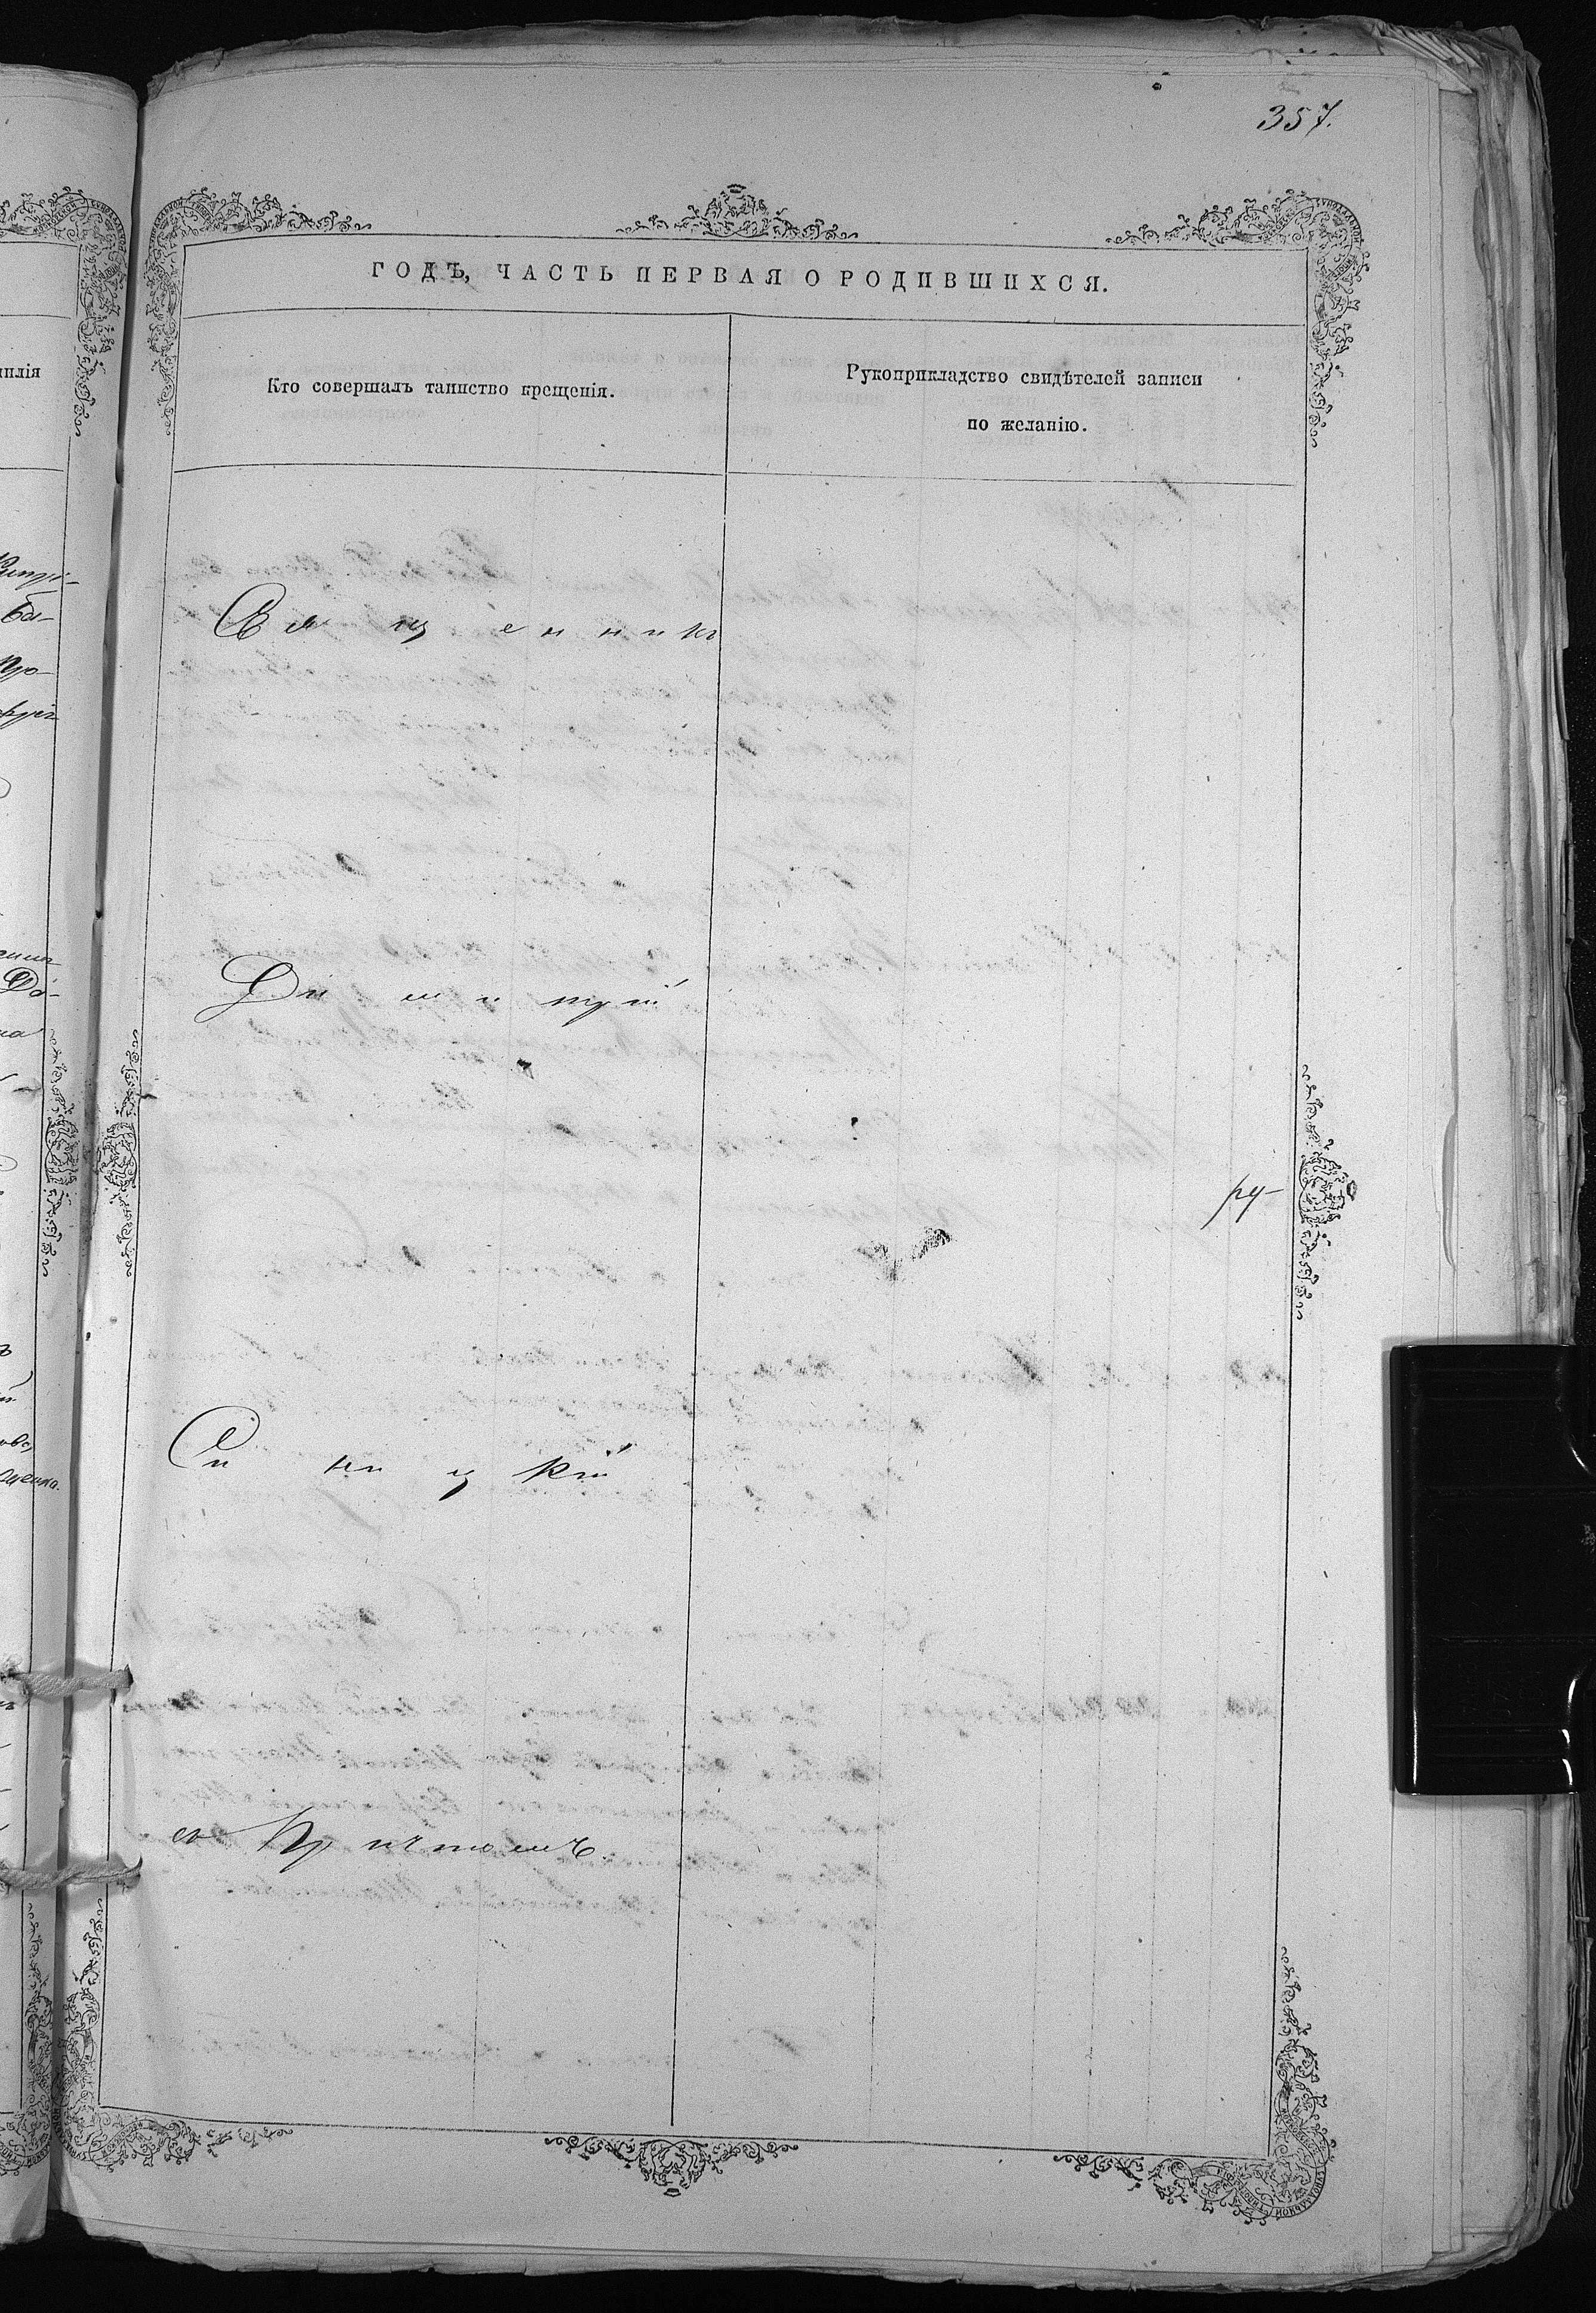 357.
ГОДЪ, ЧАСТЬ ПЕРВАЯ О РОДИВШИХСЯ.
Кто совершалъ таинство крещенія.
Рукоприкладство свидѣтелей записи
по желанію.
Священникъ
Димитрій
ру-
Си ни ц кій
съ Причтомъ.